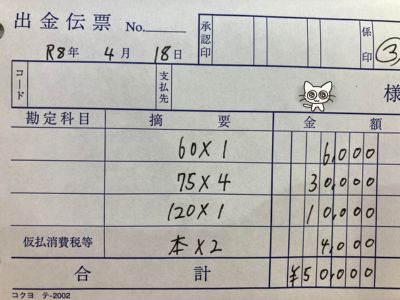 出金伝票 No. 承認印 係印 ③
R8年 4月 18日
コード 支払先 様
勘定科目 摘要 金額
60×1 6,000
75×4 30,000
120×1 10,000
仮払消費税等 本×2 4,000
合計 ¥50,000
コクヨ テ-2002